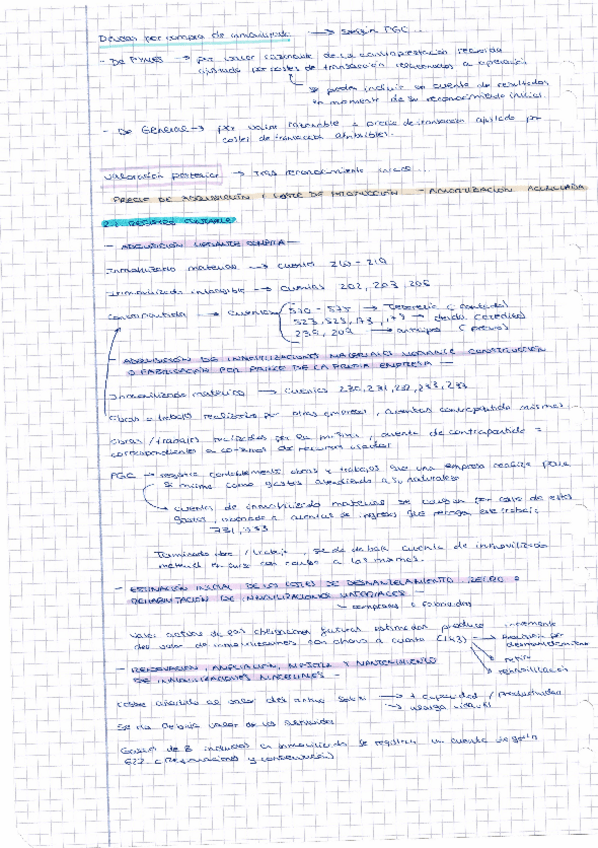 Deudas por compra de inmovilizado → según PGC...
- De PYMES → por valor razonable de la contraprestación recibida
ajustado por costes de transacción relacionados a operación
se podrán incluir en cuenta de resultados
en momento de su reconocimiento inicial.
- De General → por valor razonable = precio de transacción ajustado por
costes de transacción atribuibles.
Valoración posterior → tras reconocimiento inicial...
PRECIO DE ADQUISICIÓN / COSTE DE PRODUCCIÓN - AMORTIZACIÓN ACUMULADA
2.1. REGISTRO CONTABLE
- ADQUISICIÓN MEDIANTE COMPRA -
Inmovilizado material → cuentas 210 - 219
Inmovilizado intangible → cuentas 202, 203, 206
Contrapartida → cuentas 570 - 575 → Tesorería (contado)
523, 525, 173, → deuda (crédito)
239, 209 → anticipo (previo)
- ADQUISICIÓN DE INMOVILIZACIONES MATERIALES MEDIANTE CONSTRUCCIÓN
O FABRICACIÓN POR PARTE DE LA PROPIA EMPRESA -
Inmovilizado material → cuentas 230, 231, 232, 233, 237
Obras o trabajos realizados por otras empresas, cuentas contrapartida mismas
Obras / trabajos realizados por la misma, cuenta de contrapartida =
correspondiente a consumos de recursos usados
PGC → registra contablemente obras y trabajos que una empresa realiza para
sí misma como gastos atendiendo a su naturaleza
cuentas de inmovilizado material se cargan por coste de estos
gastos, abonando a cuentas de ingresos que recoge ese trabajo
731, 733
Terminada obra / trabajo, se da de baja cuenta de inmovilizado
material en curso con cargo a los mismos.
- ESTIMACIÓN INICIAL DE LOS COSTES DE DESMANTELAMIENTO, RETIRO O
REHABILITACIÓN DE INMOVILIZACIONES MATERIALES -
comprados o fabricados
Valor actual de esas obligaciones futuras estimadas produce incremento
del valor de inmovilizaciones con abono a cuenta (143) → provisión por
desmantelamiento
retiro
rehabilitación
- RENOVACIÓN, AMPLIACIÓN, MEJORA Y MANTENIMIENTO
DE INMOVILIZACIONES MATERIALES -
Coste añadido al valor del activo sobre → + capacidad / productividad
→ alarga vida útil
Se da de baja valor de los sustituidos
Gastos de incluidos en inmovilizado se registran en cuenta de gasto
622 (Reparaciones y conservación)